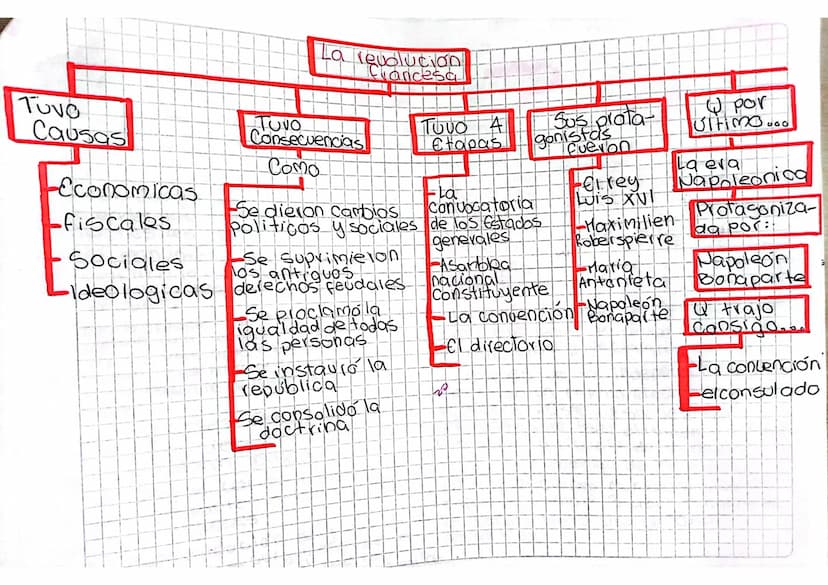 La revolución
francesa
Tuvo
Causas
-Economicas
-fiscales
-Sociales
-Ideologicas
Tuvo
Consecuencias
Como
-Se dieron cambios
politicos y sociales
-Se suprimieron
los antiguos
derechos feudales
-Se proclamó la
igualdad de todas
las personas
-Se instauró la
república
-Se consolidó la
doctrina
Tuvo 4
Etapas
-La
convocatoria
de los Estados
generales
-Asamblea
nacional
constituyente
-La convención
-El directorio
Sus prota-
gonistas
fueron
-El rey
Luis XVI
-Maximilien
Roberspierre
-María
Antonieta
-Napoleón
Bonaparte
Y por
último...
La era
Napoleonica
Protagoniza-
da por:
Napoleón
Bonaparte
Y trajo
consigo...
-La convención
-el consulado